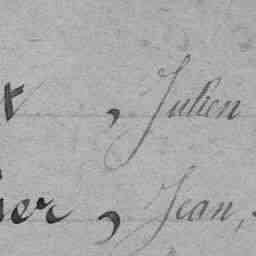 t, Julien
ier, Jean,